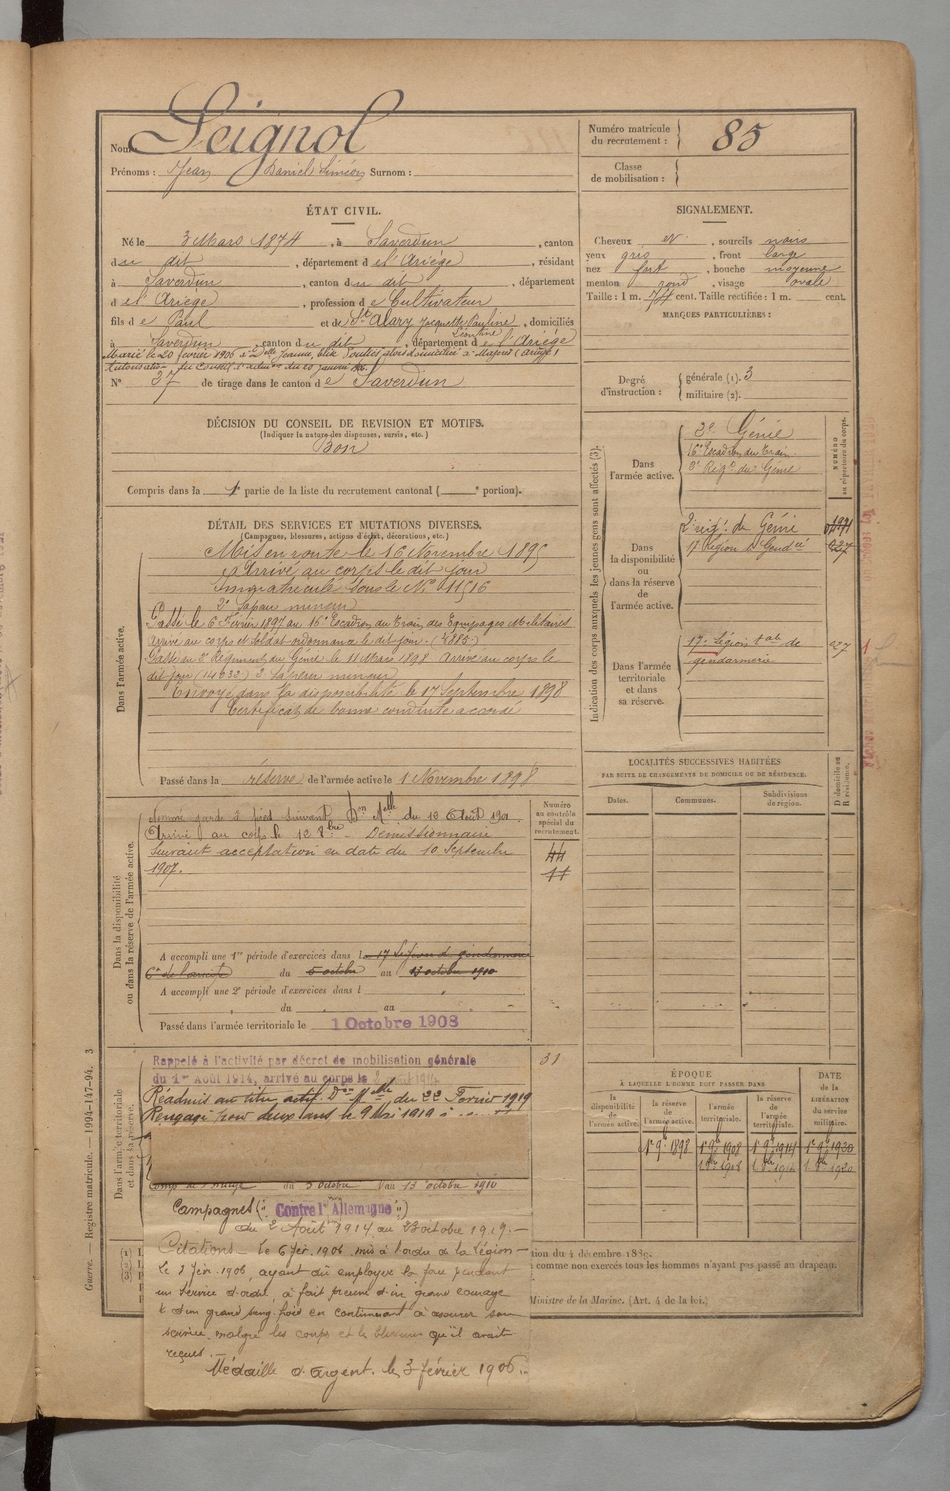 Nom : Seignol
Prénoms : Jean Daniel Siméon Surnom :
Numéro matricule du recrutement : 85
Classe de mobilisation :
ÉTAT CIVIL.
Né le 3 Mars 1874, à Saverdun, canton
du dit, département de l'Ariège, résidant
à Saverdun, canton du dit, département
d el'Ariège, profession de Cultivateur
fils de Paul et de Alary Jacquette Pauline, domiciliés
Léontine
à Saverdun, canton du dit, département de l'Ariège
Marié le 20 février 1906 à Jeanne, alors domiciliée à
Autorisation du Conseil d'adm. du 20 janvier 1906
N° 37 de tirage dans le canton de Saverdun
SIGNALEMENT.
Cheveux et, sourcils noirs
yeux gris, front large
nez fort, bouche moyenne
menton rond, visage ovale
Taille : 1 m. 74 cent. Taille rectifiée : 1 m. cent.
MARQUES PARTICULIÈRES :
Degré d'instruction : générale (1). 3
militaire (2).
DÉCISION DU CONSEIL DE REVISION ET MOTIFS.
(Indiquer la nature des dispenses, sursis, etc.)
Bon
Compris dans la 1e partie de la liste du recrutement cantonal ( e portion).
DÉTAIL DES SERVICES ET MUTATIONS DIVERSES.
(Campagnes, blessures, actions d'éclat, décorations, etc.)
Dans l'armée active.
Mis en route le 16 Novembre 1895
Arrivé au corps le dit jour
Immatriculé sous le N° 11516
2e Sapeur mineur
Passé le 6 Février 1897 au 16e Escadron du Train des Equipages Militaires
Arrivé au corps et soldat ordonnance le dit jour (4885)
Passé au 3e Régiment du Génie le 11 Mars 1898 Arrivé au corps le
dit jour (14632) 2e Sapeur mineur
Envoyé dans la disponibilité le 17 Septembre 1898
Certificat de bonne conduite accordé
Passé dans la réserve de l'armée active le 1 Novembre 1898
Indication des corps auxquels les jeunes gens sont affectés (3).
NUMÉRO au répertoire du corps.
Dans l'armée active.
3e Génie
16e Escadron du Train
3e Regt du Génie
Dans la disponibilité ou dans la réserve de l'armée active.
2e régt de Génie
17 Légion de Gendie
927
Dans l'armée territoriale et dans sa réserve.
17e Légion de
gendarmerie
927
LOCALITÉS SUCCESSIVES HABITÉES
PAR SUITE DE CHANGEMENTS DE DOMICILE OU DE RÉSIDENCE.
Dates. Communes. Subdivisions de région. D domicile ou R résidence.
Dans la disponibilité ou dans la réserve de l'armée active.
Numéro au contrôle spécial du recrutement.
Nommé garde à pied suivant Don Melle du 13 Août 1901
Arrivé au corps le 12 7bre Démissionnaire
Suivant acceptation en date du 10 Septembre
1907.
44
11
A accompli une 1re période d'exercices dans l 17 Légion de gendarmerie
du 5 octobre au 13 octobre 1910
A accompli une 2e période d'exercices dans l
du au
Passé dans l'armée territoriale le 1 Octobre 1908
Dans l'armée territoriale et dans sa réserve.
Rappelé à l'activité par décret de mobilisation générale
du 1er Août 1914, arrivé au corps le 2
31
Réadmis au titre actif Don Melle du 22 Février 1919
Rengagé pour deux ans le 9 Mai 1919 à
du 5 octobre au 13 octobre 1910
Campagnes ( Contre l'Allemagne )
du 2 Août 1914 au 23 octobre 1919.
Citations le 6 fév. 1906 mis à l'ordre de la légion
le 2 fév. 1906, ayant dû employer la force pendant
un service d'ordre, a fait preuve d'un grand courage
et d'un grand sang froid en continuant à assurer son
service, malgré les coups et la blessure qu'il avait
reçues.
Médaille d'argent. le 3 février 1906.
ÉPOQUE
À LAQUELLE L'HOMME DOIT PASSER DANS
la disponibilité de l'armée active. la réserve de l'armée active. l'armée territoriale. la réserve de l'armée territoriale.
DATE de la LIBÉRATION du service militaire.
1er 9b 1898 1er 9b 1908 1er 9b 1914 1er 9b 1920
tion du 4 décembre 1889.
comme non exercés tous les hommes n'ayant pas passé au drapeau.
Ministre de la Marine. (Art. 4 de la loi.)
Guerre. — Registre matricule. — 1994-147-94. 3